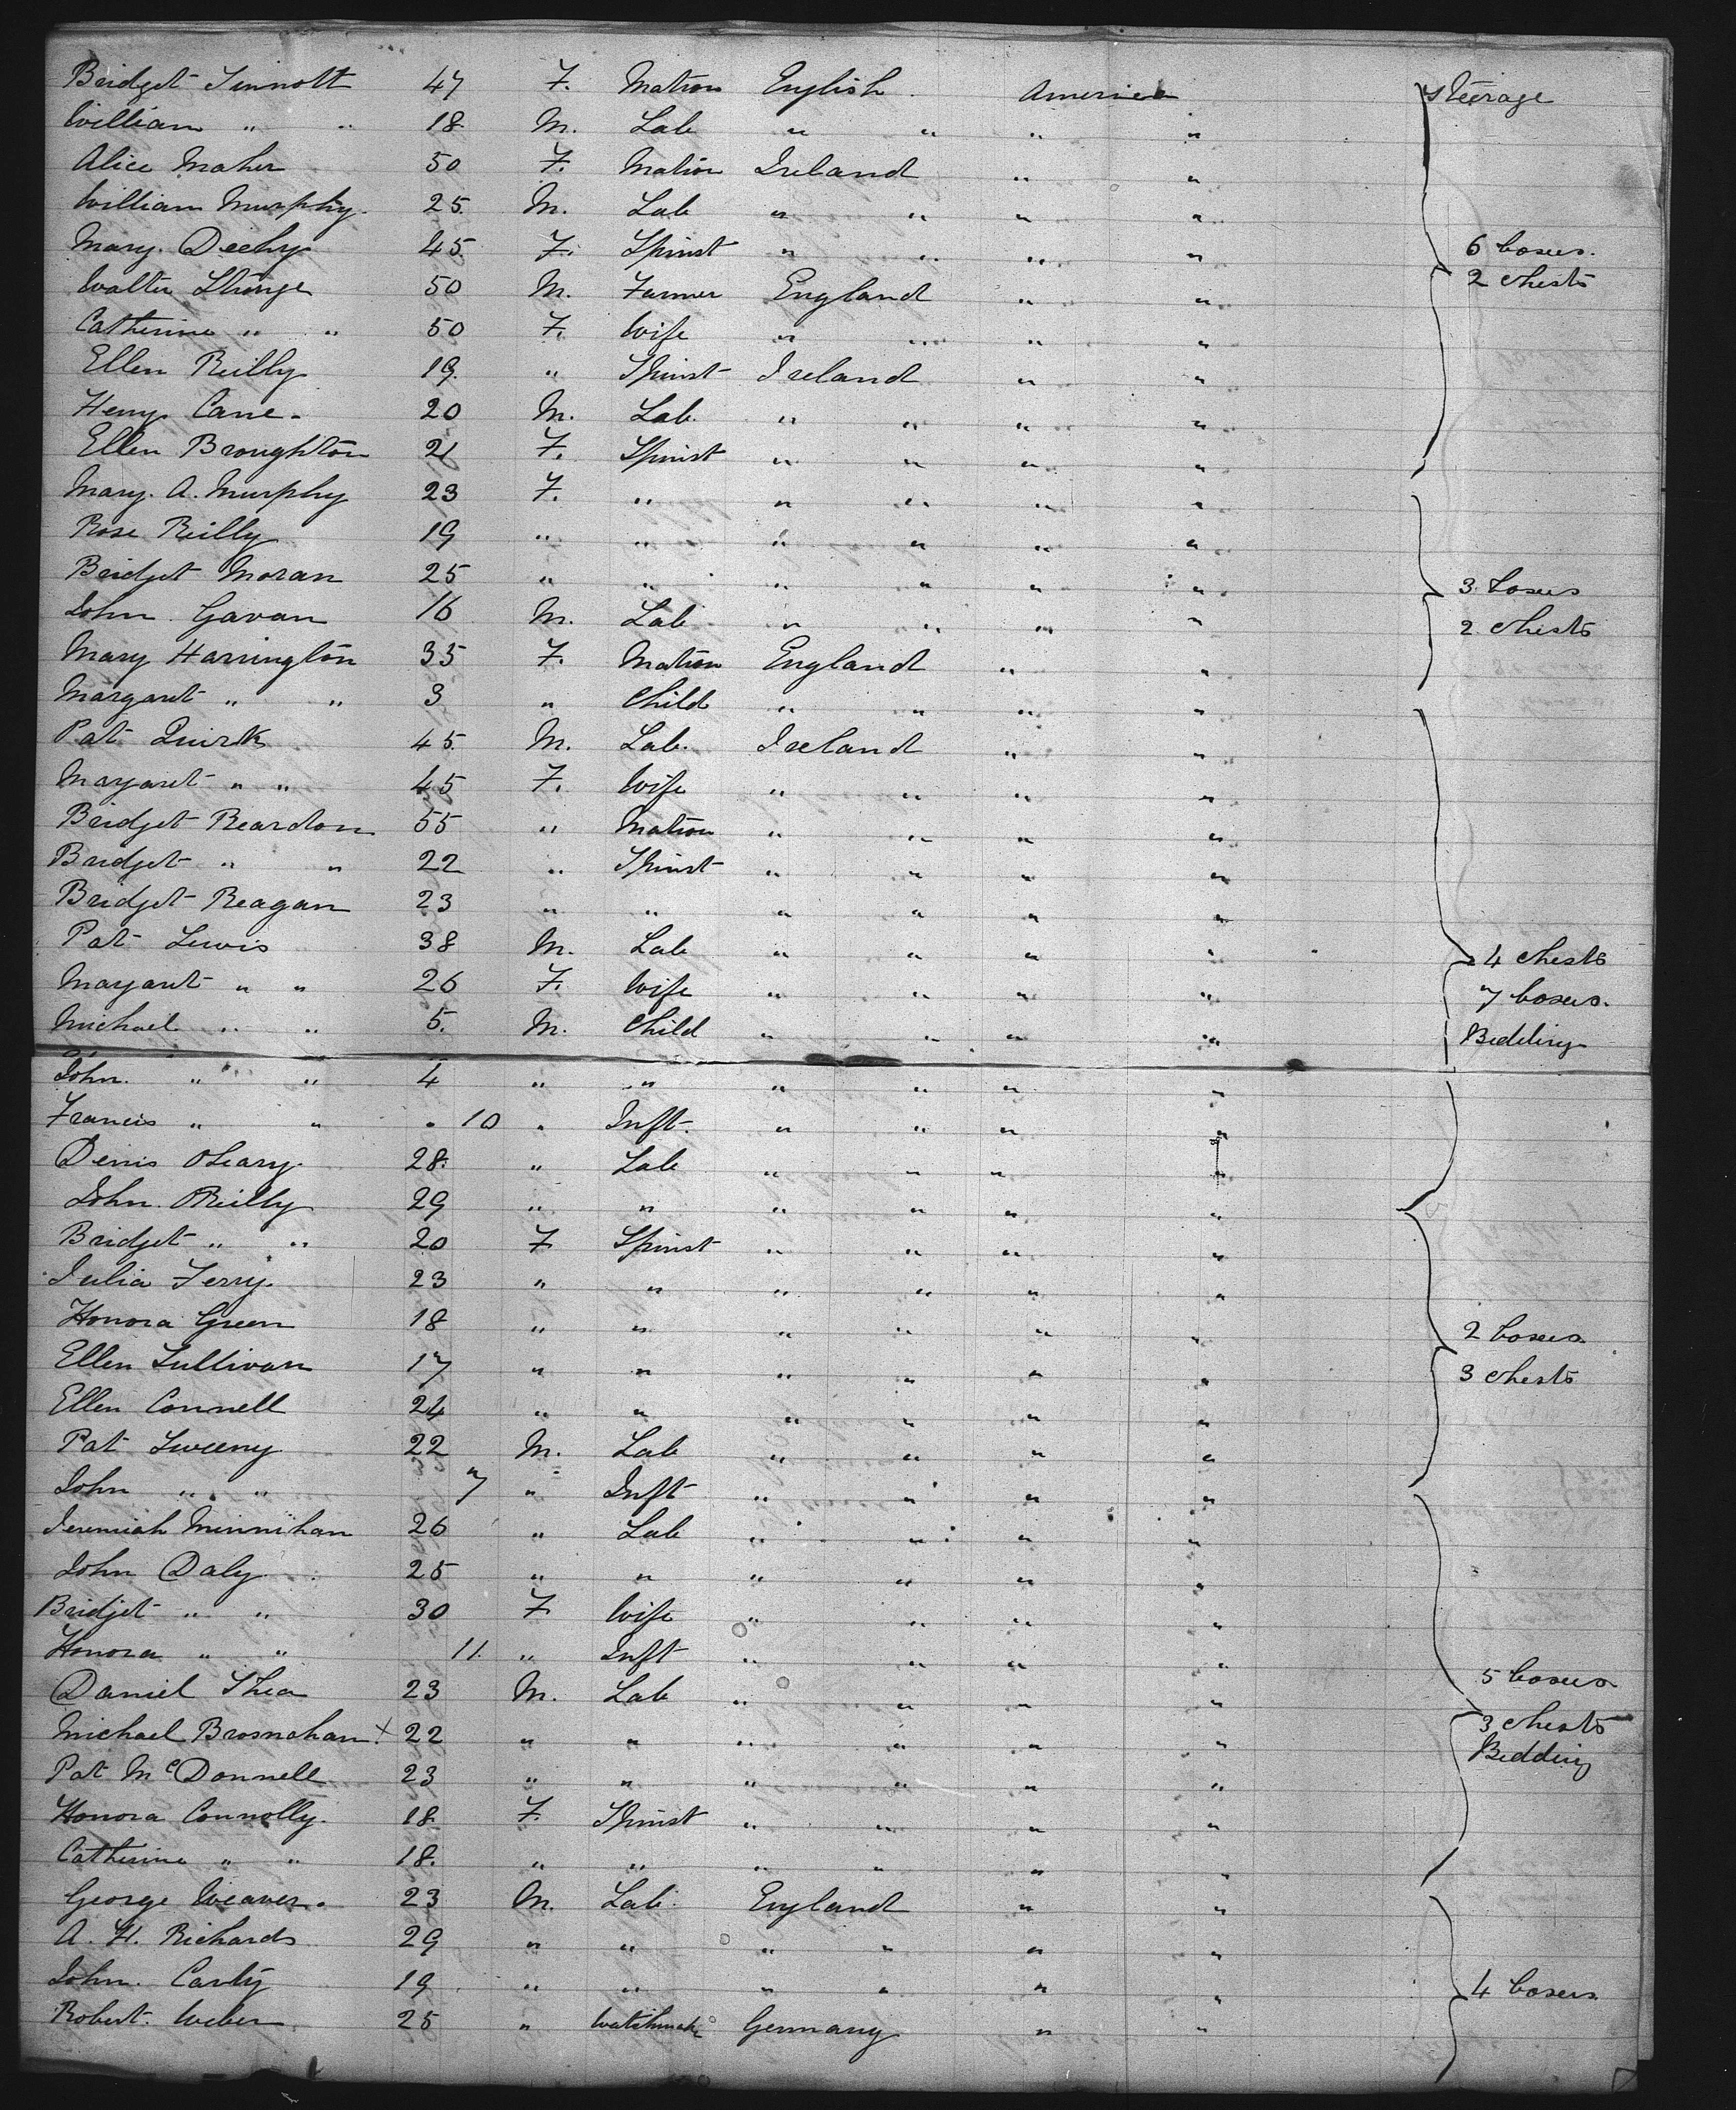 Bridget Sinnott 47 F. Matron English America Steerage
William " " 18 M. Lab " " " "
Alice Maher 50 F. Matron Ireland " "
William Murphy. 25. M. Lab " " " "
Mary. Deehy 45. F. Spinst " " " " 6 boxes.
Walter Strange 50 M. Farmer England " " 2 chests
Catherine " " 50 F. Wife " " " "
Ellen Reilly 19. " Spinst Ireland " "
Henry Cane. 20 M. Lab. " " " "
Ellen Broughton 21 F. Spinst " " " "
Mary. A. Murphy 23 F. " " " " "
Rose Reilly 19 " " " " " "
Bridget Moran 25 " " " " " " 3 boxes
John Gavan 16 M. Lab " " " " 2 chests
Mary Harrington 35 F. Matron England " "
Margaret " " 3 " Child " " " "
Pat Quirk 45. M. Lab. Ireland " "
Margaret " " 45 F. Wife " " " "
Bridget Reardon 55 " Matron " " " "
Bridget " " 22 " Spinst " " " "
Bridget Reagan 23 " " " " " "
Pat Lewis 38 M. Lab " " " " 4 chests
Margaret " " 26 F. Wife " " " " 7 boxes.
Michael " " 5. M. Child " " " " Bedding
John. " " 4 " " " " " "
Francis " " " 10 " Inft. " " " "
Denis OLeary. 28. " Lab " " " "
John. OReilly 29 " " " " " "
Bridget " " 20 F Spinst " " " "
Julia Terry. 23 " " " " " "
Honora Green 18 " " " " " " 2 boxes
Ellen Sullivan 17 " " " " " " 3 chests
Ellen Connell 24 " " " " " "
Pat Sweeny 22 M. Lab " " " "
John " " 7 " Inft " " " "
Jeremiah Minnihan 26 " Lab " " " "
John Daly 25 " " " " " "
Bridjet " " 30 F Wife " " " "
Honora " " 11. " Inft " " " "
Daniel Shea 23 M. Lab " " " " 5 boxes
Michael Brosnahan X 22 " " " " " " 3 chests
Pat McDonnell 23 " " " " " " Bedding
Honora Connolly. 18. F. Spinst " " " "
Catherine " " 18. " " " " " "
George Weaver. 23 M. Lab. England " "
A. H. Richards 29 " " " " " "
John. Carly 19 " " " " " " 4 boxes
Robert. Weber 25 " Watchmak Germany " "